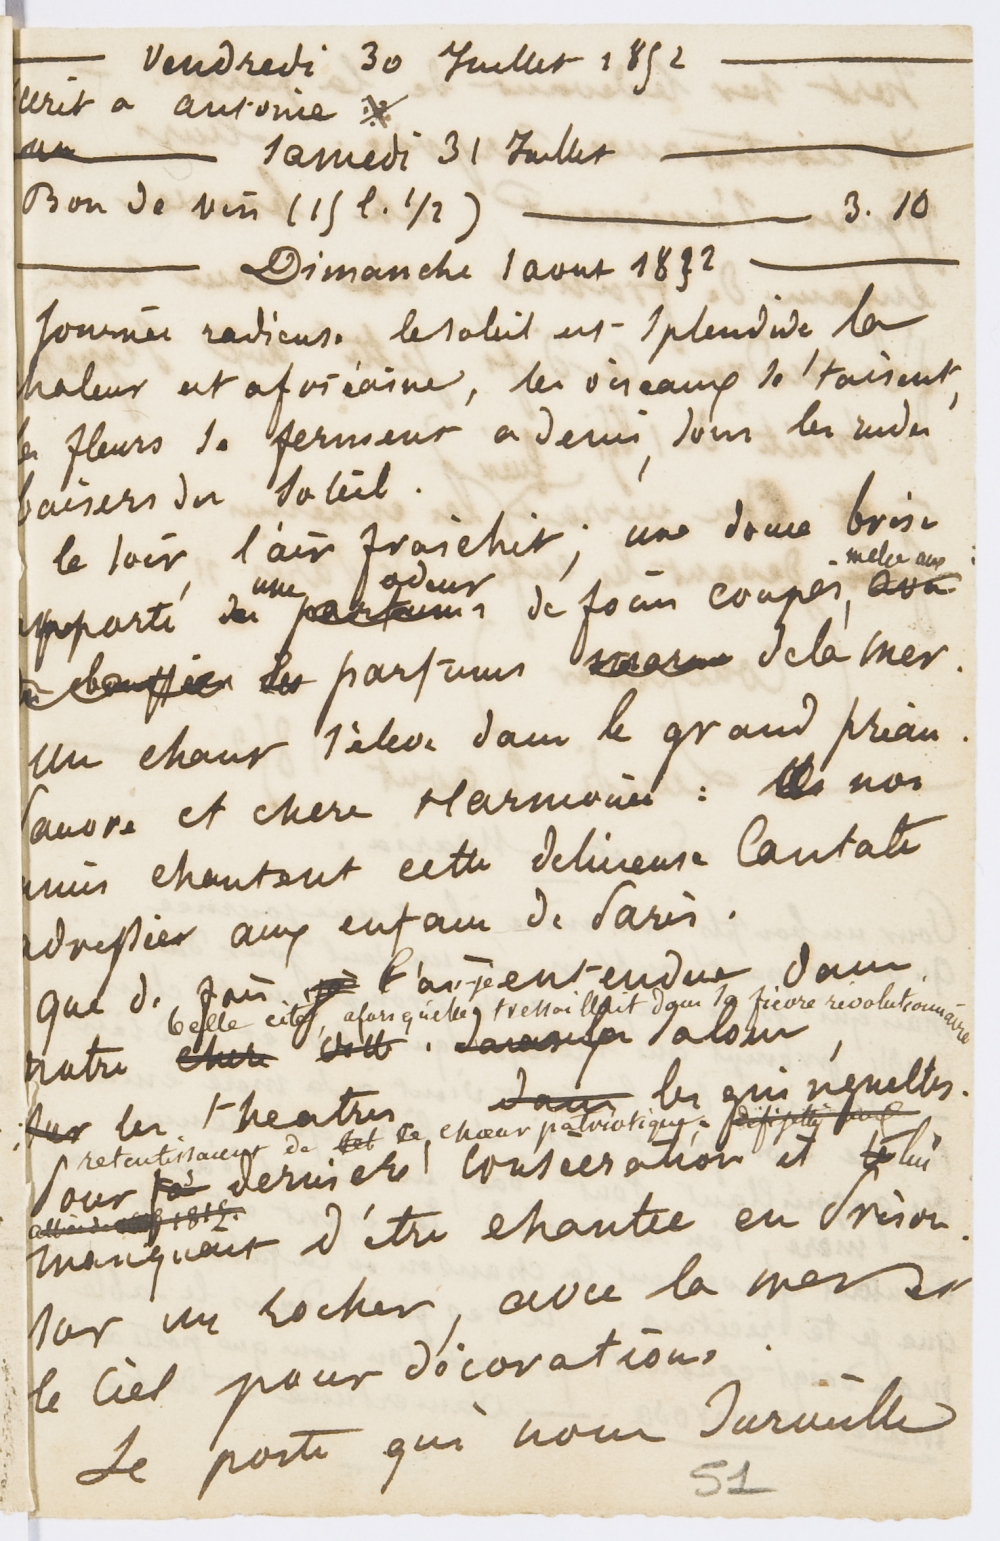 Vendredi 30 Juillet 1852
écrit a antonie
Samedi 31 Juillet
Bon de vin (15 l. 1/2) 3. 10
Dimanche 1 aout 1852
Journée radieuse le soleil est splendide la
chaleur est afoséaine, les oiseaux se taisent,
les fleurs se ferment a demi, sous les rudes
baisers du soleil.
le soir, l'air fraichit; une douce brise
mélée aux
une odeur
apporte des parfums de foins coupés, avec
les parfums de la mer.
un chant s'éleve dans le grand préau.
Sauvre et chere Harmonie : nos
amis chantent cette delicieuse Cantate
adressée aux enfans de Paris.
que de fois je l'ai-je entendue dans
belle cité, alors qu'elle tressaillait dans sa fievre révolutionnaire
notre chere salons,
sur les theatres dans les guinguettes.
retentissaient de ce chœur patriotique.
Pour sa derniere consecration il lui
1852.
manquait d'être chantée en Prison.
sur un rocher, avec la mer et
le Ciel pour décorations.
Le poste qui nous surveille
51